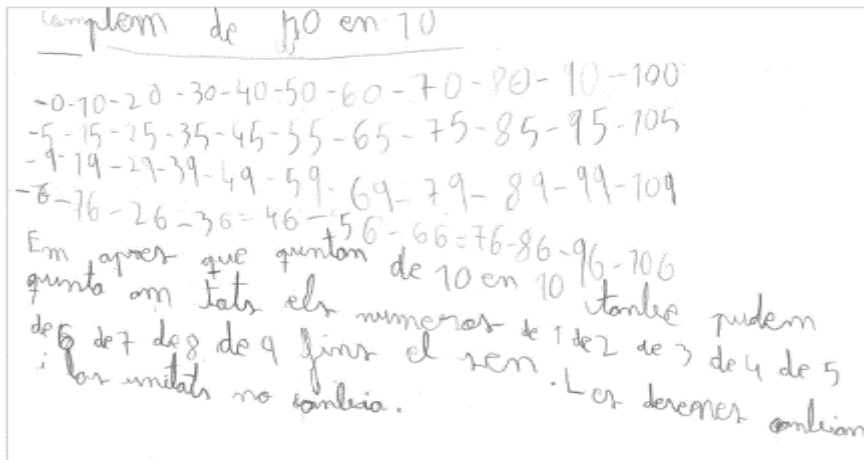 complem de 10 en 10
-0-10-20-30-40-50-60-70-80-90-100
-5-15-25-35-45-55-65-75-85-95-105
-9-19-29-39-49-59-69-79-89-99-109
-6-16-26-36-46-56-66-76-86-96-106
Em apres que quntan de 10 en 10 tanbe pudem
qunta am tots els numeros de 1 de 2 de 3 de 4 de 5
de 6 de 7 de 8 de 9 fins el sen. Les desenes canbian
i las unitats no canbia.